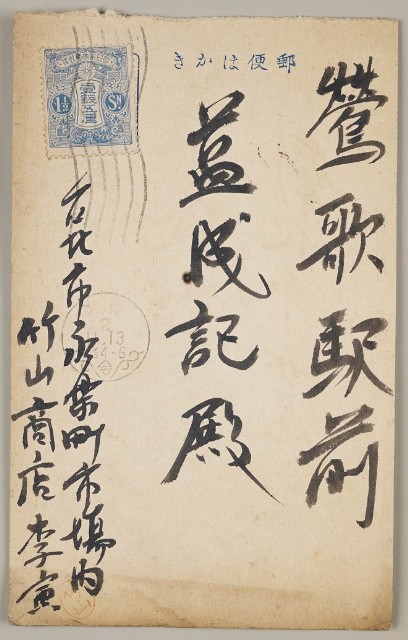 郵便はかき
鶯歌駅前
益成記殿
台北市永楽町市場内
竹山商店李寅
1½ Sn
壹錢五厘
2
13